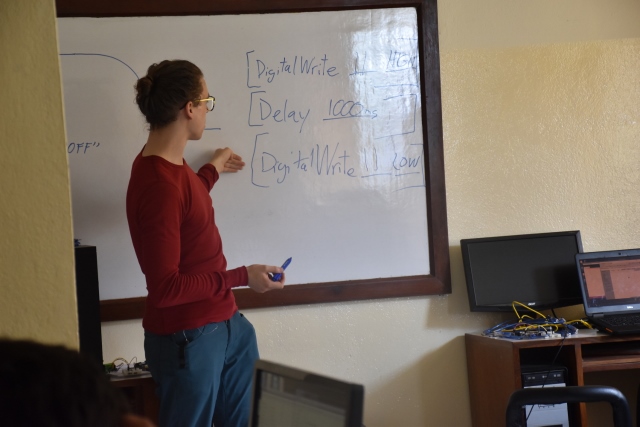 [DigitalWrite 11 HIGH
[Delay 1000ms
OFF"
[DigitalWrite 11 LOW